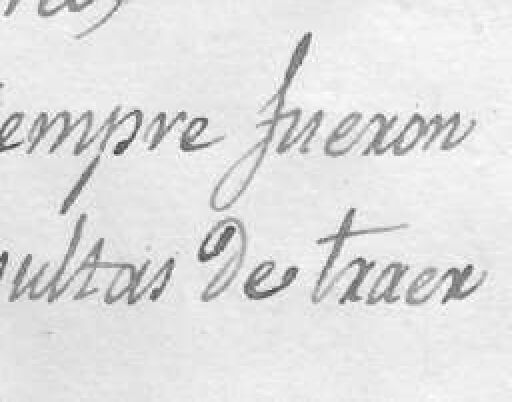 empre fueron
ultas de traer